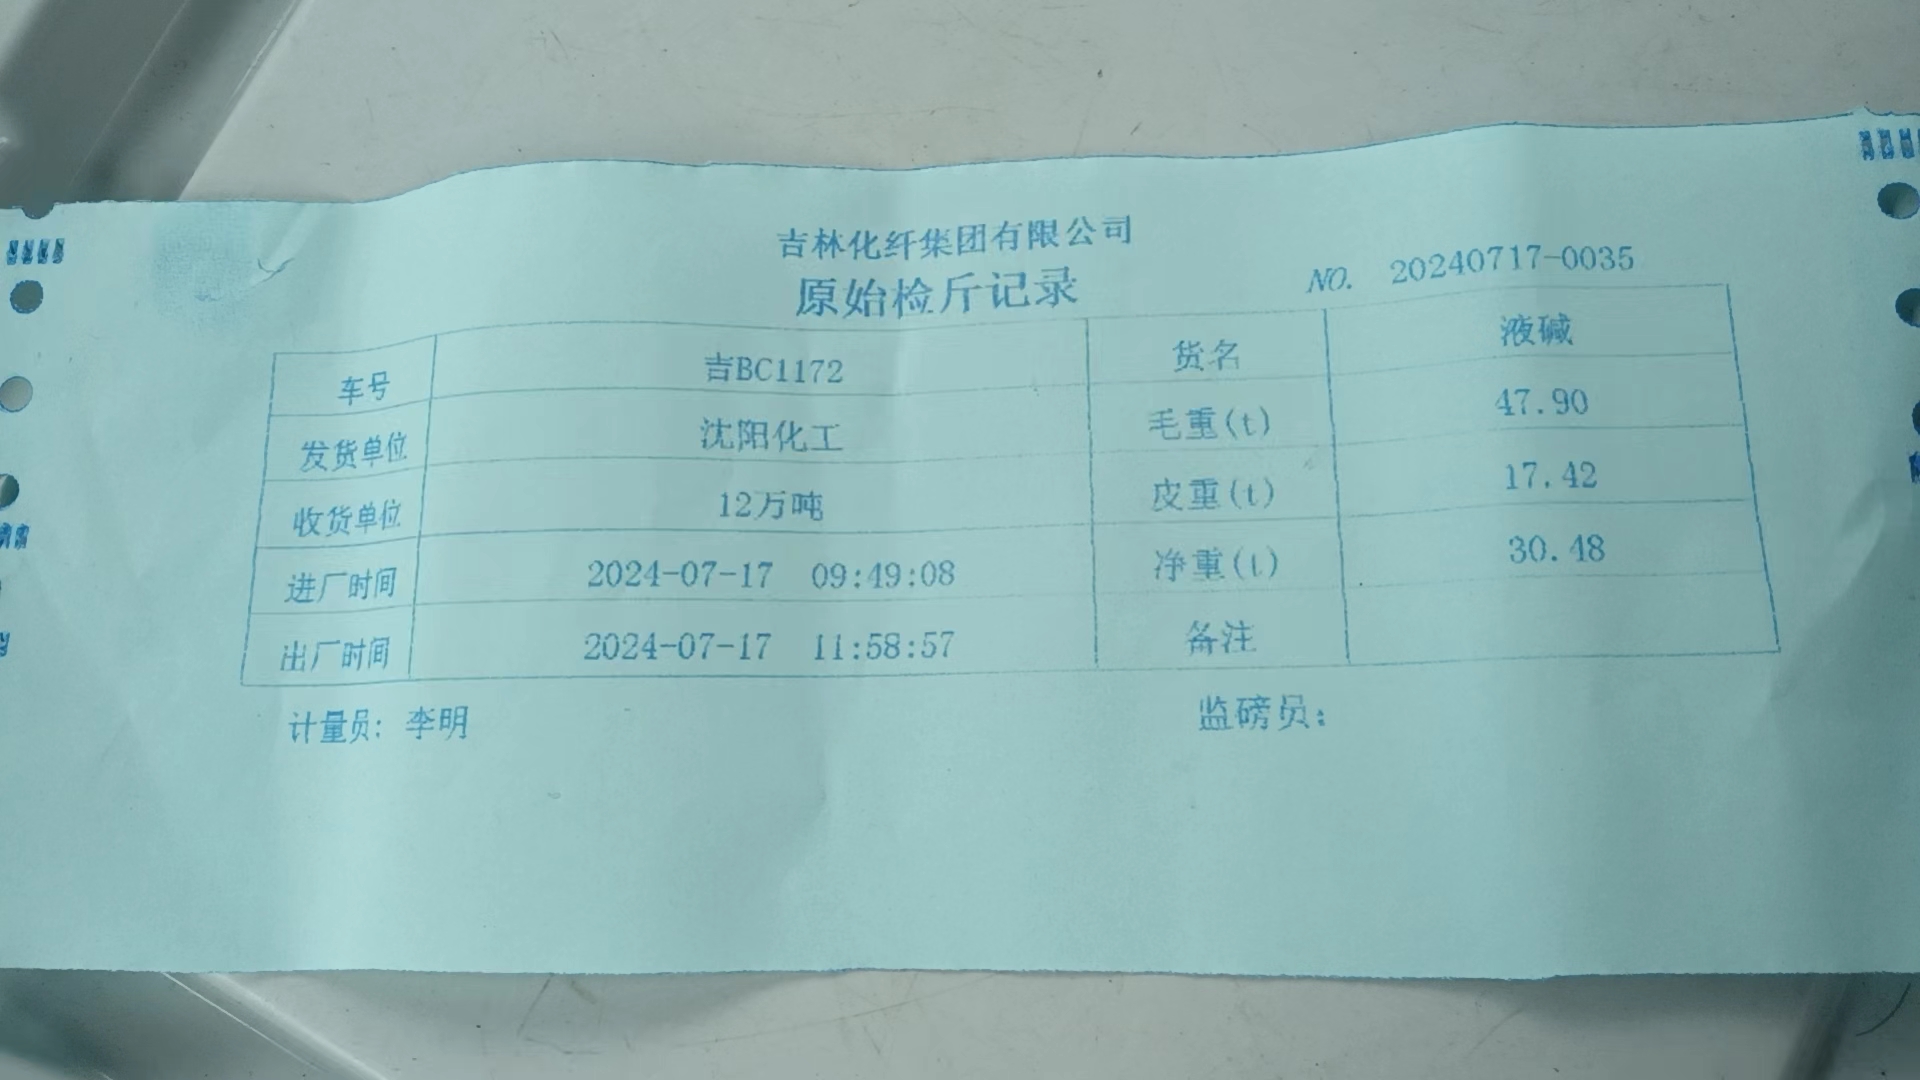 吉林化纤集团有限公司
原始检斤记录
NO. 20240717-0035
车号 吉BC1172 货名 液碱
发货单位 沈阳化工 毛重(t) 47.90
收货单位 12万吨 皮重(t) 17.42
进厂时间 2024-07-17 09:49:08 净重(t) 30.48
出厂时间 2024-07-17 11:58:57 备注
计量员: 李明 监磅员: